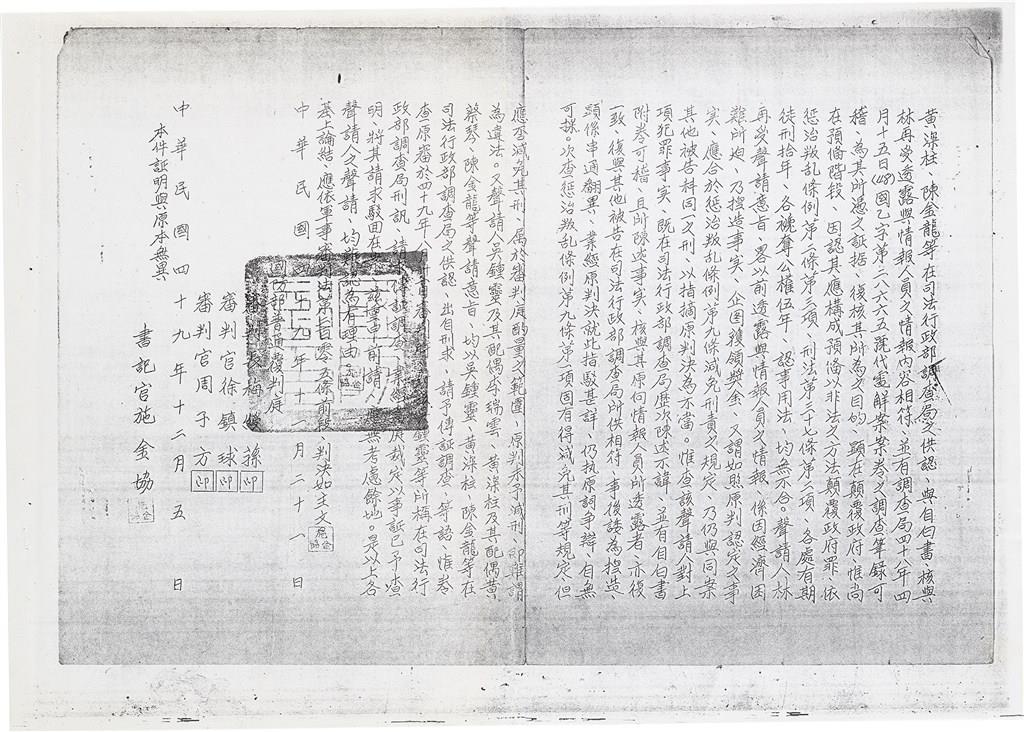 黃深柱、陳金龍等在司法行政部調查局之供認、與自白書、核與
林再受透露與情報人員之情報內容相符、並有調查局四十八年四
月十五日(48)國乙字第二八六六五號代電解案案卷之調查筆錄可
稽、為其所憑之証据、復核其所為之目的、顯在顛覆政府、惟尚
在預俻階段、因認其應構成預俻以非法之方法顛覆政府罪、依
惩治叛乱條例第二條第三項、刑法第三十七條第二項、各處有期
徒刑拾年、各褫奪公權伍年、認事用法、均無不合。聲請人林
再受聲請意旨、畧以前透露與情報人員之情報、係因經濟困
難所迫、乃捏造事實、企图獲領獎金、又謂如照原判認定之事
實、應合於惩治叛乱條例第九條減免刑責之規定、乃仍與同案
其他被告科同一之刑、以指摘原判決為不當。惟查該聲請人對上
項犯罪事實、既在司法行政部調查局歷次陳述不諱、並有自白書
附卷可稽、且所陳述事實、核與其原向情報員所透露者、亦復
一致、復與其他被告在司法行政部調查局所供相符、事後諉為捏造、
顕係串通翻異、業經原判決就此指駁甚詳、仍执原詞爭辯、自無
可採。次查惩治叛乱條例第九條第一項固有得減免其刑等規定、但
應否減免其刑、属於審判庭酌量之範圍、原判未予減刑、即难謂
為違法。又聲請人吳鍾靈及其配偶李瑞雲、黃深柱及其配偶黃
蔡琴、陳金龍等聲請意旨、均以吳鍾靈、黃深柱、陳金龍等在
司法行政部調查局之供認、出自刑求、請予傳証調查、等語、惟卷
查原審於四十九年八月
政部調查局刑訊、請裁定以事証已予查
明、將其請求駁回在無考慮餘地。是以上各
聲請人之聲請、均難認為有理由
基上論結、應依軍事審判法第二百零五條前段、判決如主文。
中華民國四十九年十一月二十一日
國防部普通覆判庭
審判官徐鎮球 印
審判官周予方 印
本件証明與原本無異
書記官施金協
中華民國四十九年十二月五日